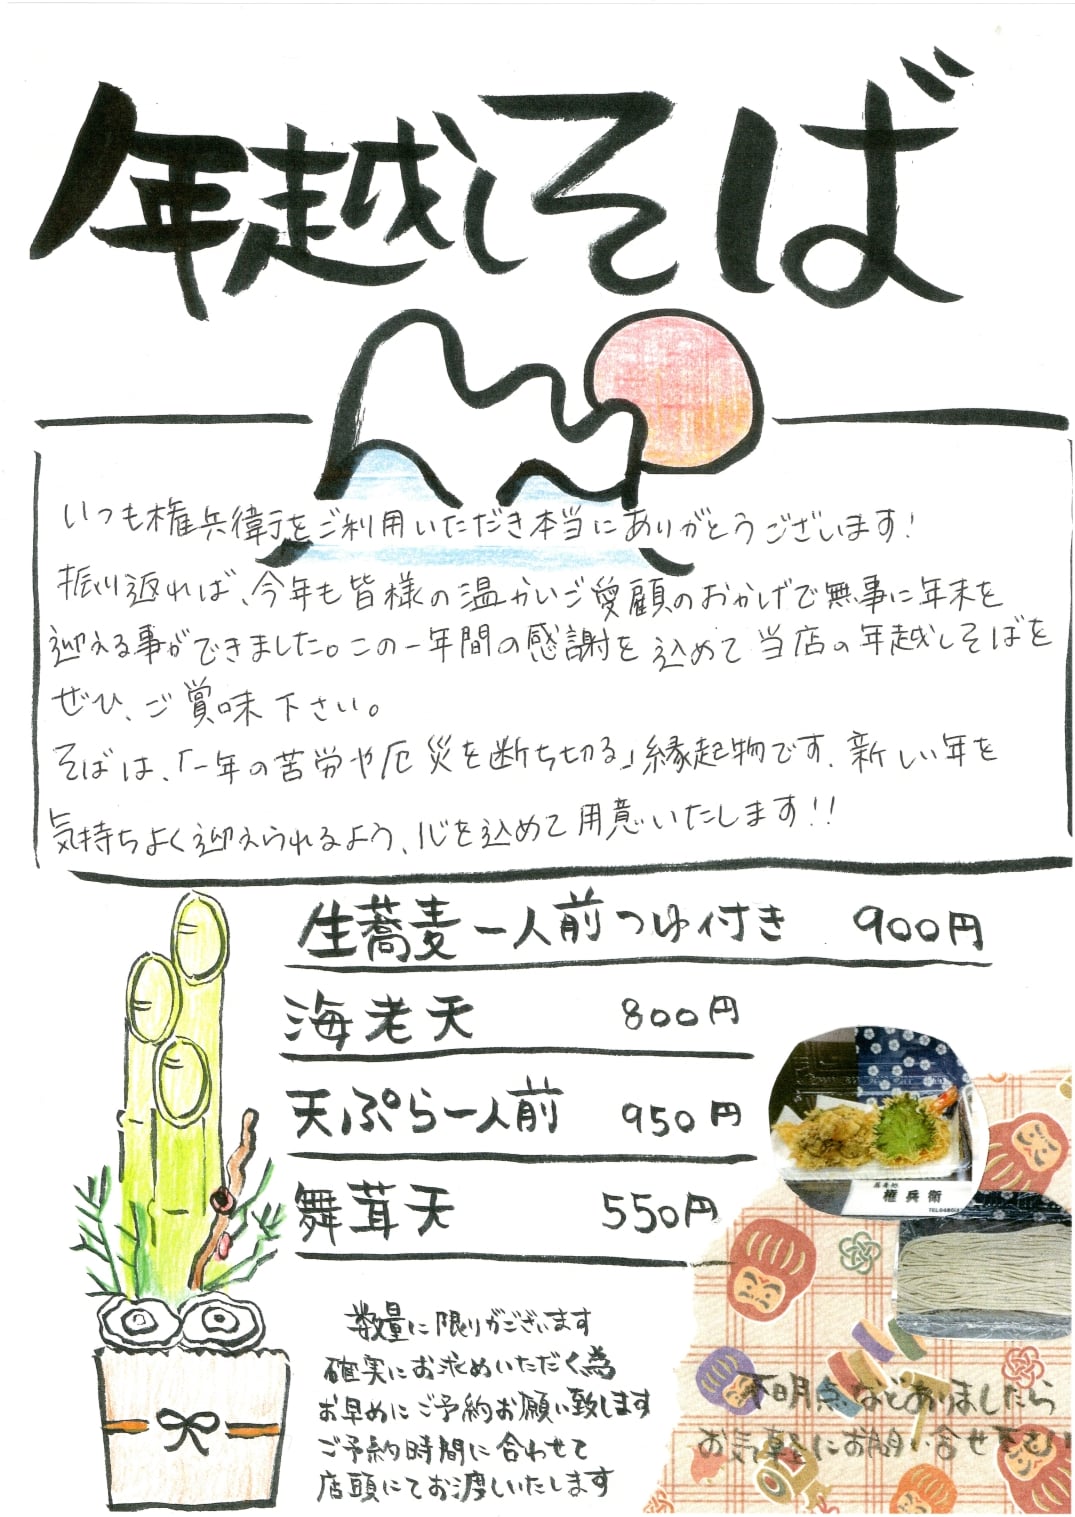 年越しそば
いつも権兵衛をご利用いただき本当にありがとうございます!
振り返れば、今年も皆様の温かいご愛顧のおかげで無事に年末を
迎える事ができました。この一年間の感謝を込めて当店の年越しそばを
ぜひ、ご賞味下さい。
そばは、「一年の苦労や厄災を断ち切る」縁起物です。新しい年を
気持ちよく迎えられるよう、心を込めて用意いたします!!
生蕎麦一人前つゆ付き 900円
海老天 800円
天ぷら一人前 950円
舞茸天 550円
権兵衛
数量に限りがございます
確実にお求めいただく為
お早めにご予約お願い致します
ご予約時間に合わせて
店頭にてお渡しいたします
不明点などありましたら
お気軽にお問い合せ下さい